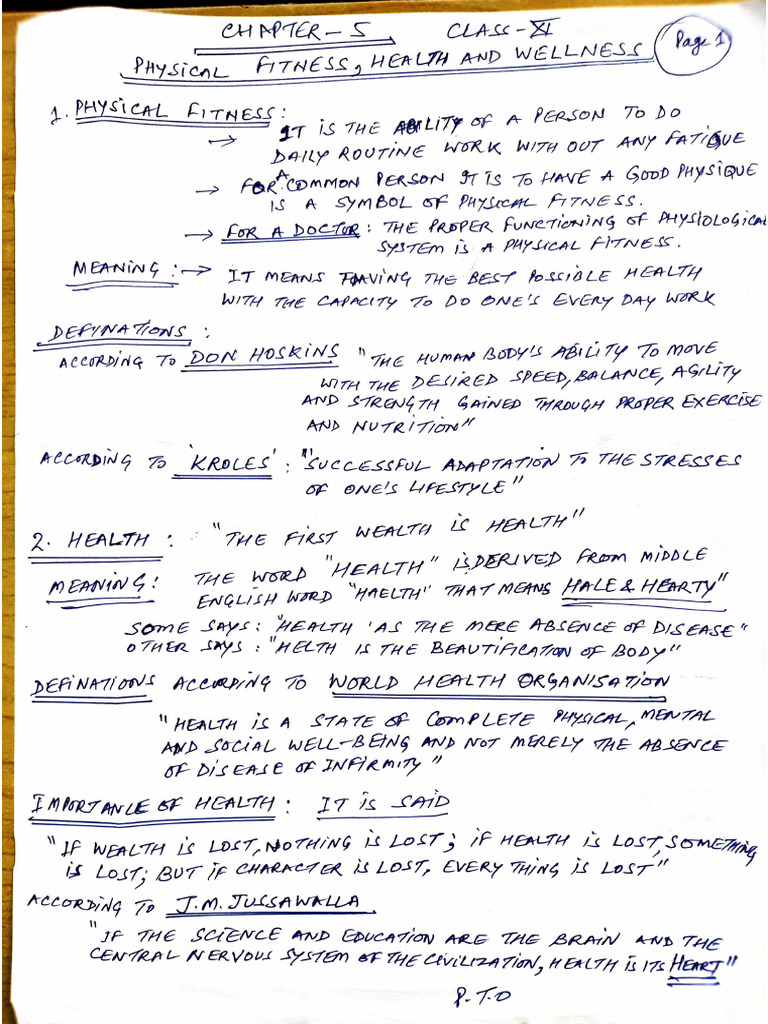 CHAPTER-5 CLASS-XI
Page 1
PHYSICAL FITNESS, HEALTH AND WELLNESS
1. PHYSICAL FITNESS:
→ IT IS THE ABILITY OF A PERSON TO DO
DAILY ROUTINE WORK WITH OUT ANY FATIGUE
→ FOR A COMMON PERSON IT IS TO HAVE A GOOD PHYSIQUE
IS A SYMBOL OF PHYSICAL FITNESS.
→ FOR A DOCTOR: THE PROPER FUNCTIONING OF PHYSIOLOGICAL
SYSTEM IS A PHYSICAL FITNESS.
MEANING: → IT MEANS HAVING THE BEST POSSIBLE HEALTH
WITH THE CAPACITY TO DO ONE'S EVERY DAY WORK
DEFINATIONS:
ACCORDING TO DON HOSKINS "THE HUMAN BODY'S ABILITY TO MOVE
WITH THE DESIRED SPEED, BALANCE, AGILITY
AND STRENGTH GAINED THROUGH PROPER EXERCISE
AND NUTRITION"
ACCORDING TO 'KROLES': "SUCCESSFUL ADAPTATION TO THE STRESSES
OF ONE'S LIFESTYLE"
2. HEALTH: "THE FIRST WEALTH IS HEALTH"
MEANING: THE WORD "HEALTH" IS DERIVED FROM MIDDLE
ENGLISH WORD "HAELTH" THAT MEANS HALE & HEARTY"
SOME SAYS: "HEALTH 'AS THE MERE ABSENCE OF DISEASE"
OTHER SAYS: "HELTH IS THE BEAUTIFICATION OF BODY"
DEFINATIONS ACCORDING TO WORLD HEALTH ORGANISATION
"HEALTH IS A STATE OF COMPLETE PHYSICAL, MENTAL
AND SOCIAL WELL-BEING AND NOT MERELY THE ABSENCE
OF DISEASE OF INFIRMITY"
IMPORTANCE OF HEALTH: IT IS SAID
"IF WEALTH IS LOST, NOTHING IS LOST; IF HEALTH IS LOST, SOMETHING
IS LOST; BUT IF CHARACTER IS LOST, EVERY THING IS LOST"
ACCORDING TO J.M. JUSSAWALLA
"IF THE SCIENCE AND EDUCATION ARE THE BRAIN AND THE
CENTRAL NERVOUS SYSTEM OF THE CIVILIZATION, HEALTH IS ITS HEART"
P.T.O